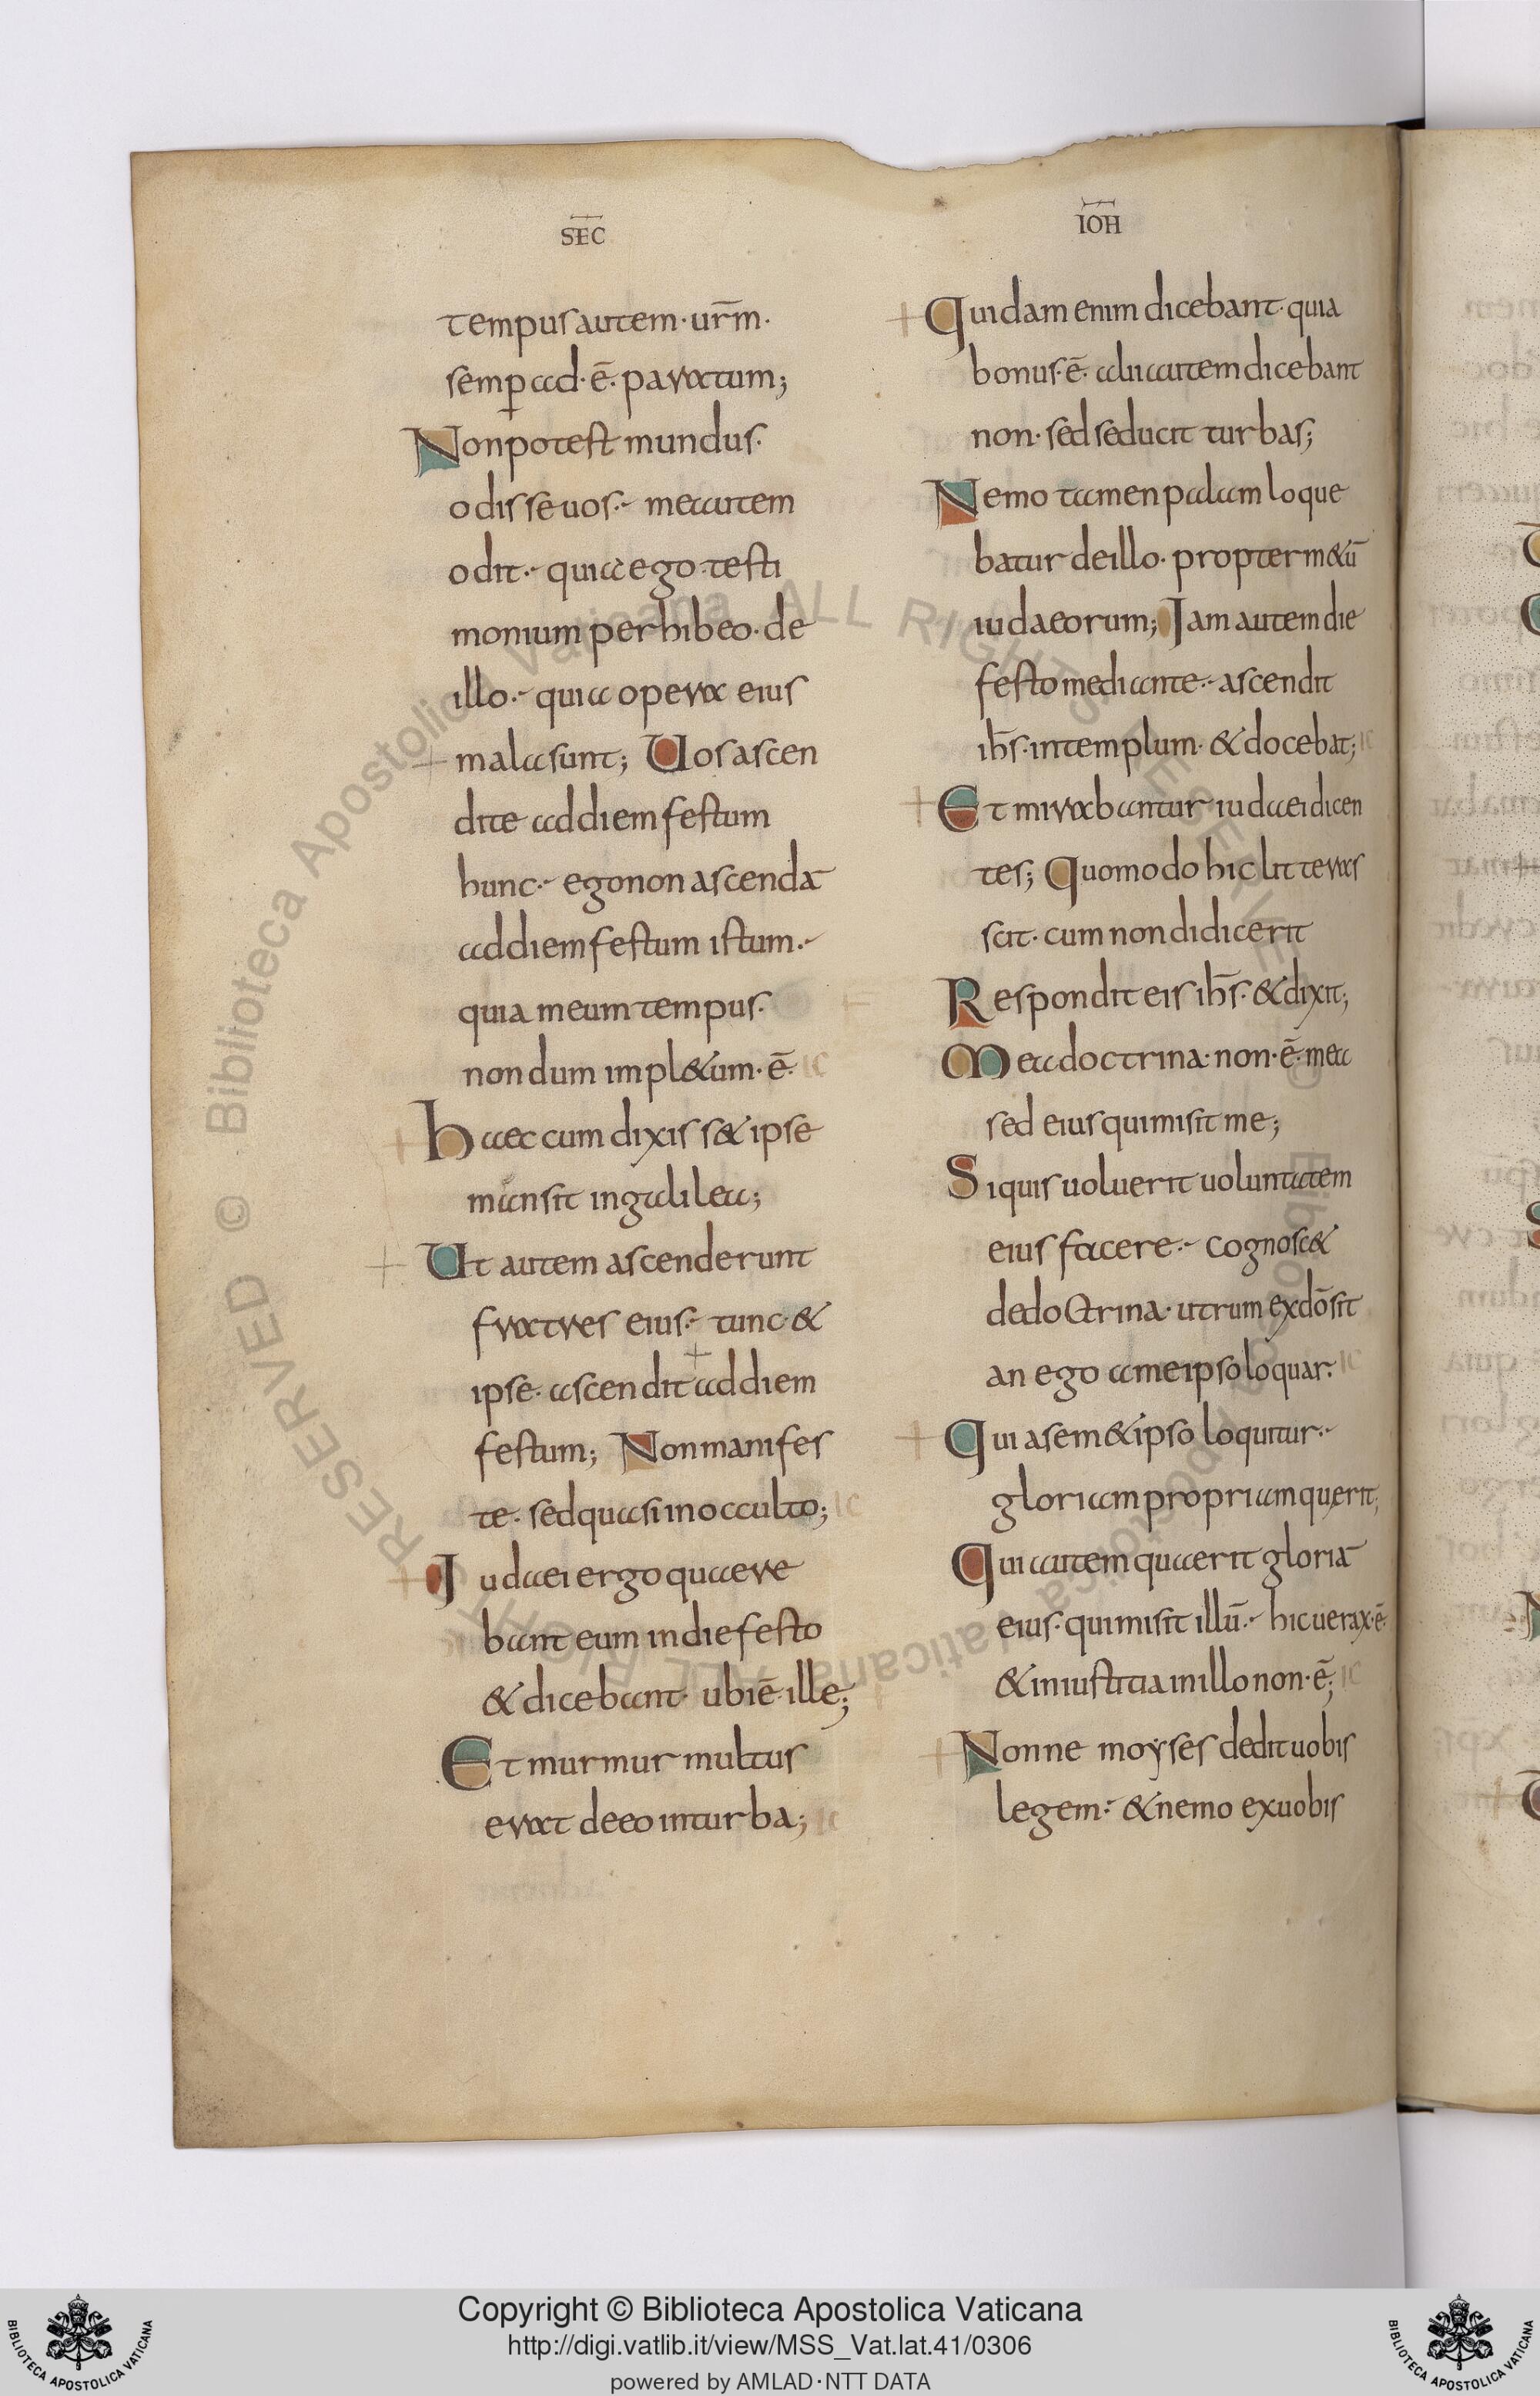 SEC̅
tempus autem· ur̅m·
semp̱ ad· ē· paratum;
Non potest mundus·
odisse uos·- me autem
odit·- quia ego testi
monium perhibeo· de
illo·- quia opera eius
mala sunt; Uos ascen
dite ad diem festum
hunc·- ego non ascendā
ad diem festum istum·-
quia meum tempus·
nondum impl&um· ē·
Haec cum dixiss& ipse
mansit in galilea;
Ut autem ascenderunt
fratres eius·- tunc &
ipse· ascendit ad diem
festum; Non manifes
te· sed quasi in occulto;
Iudaei ergo quaere
bant eum in die festo
& dicebant· ubi ē· ille;
Et murmur multus
erat de eo in turba;
IOH̅
Quidam enim dicebant· quia
bonus· ē· alii autem dicebant
non· sed seducit turbas;
Nemo tamen palam loque
batur de illo· propter m&ū
iudaeorum; Iam autem die
festo mediante·- ascendit
ih̅s· in templum· & docebat;
Et mirabantur iudaei dicen
tes; Quomodo hic litteras
scit· cum non didicerit
Respondit eis ih̅s· & dixit;
Mea doctrina· non· ē· mea
sed eius qui misit me;
Si quis uoluerit uoluntatem
eius facere·- cognosc&
de doctrina· utrum ex dō sit
an ego a me ipso loquar·
Qui a sem&ipso loquitur·-
gloriam propriam querit;
Qui autem quaerit gloriā
eius· qui misit illū·- hic uerax· ē·
& iniustitia in illo non· ē;
Nonne moyses dedit uobis
legem·- & nemo ex uobis
Copyright © Biblioteca Apostolica Vaticana
http://digi.vatlib.it/view/MSS_Vat.lat.41/0306
powered by AMLAD·NTT DATA
BIBLIOTECA APOSTOLICA VATICANA
BIBLIOTECA APOSTOLICA VATICANA